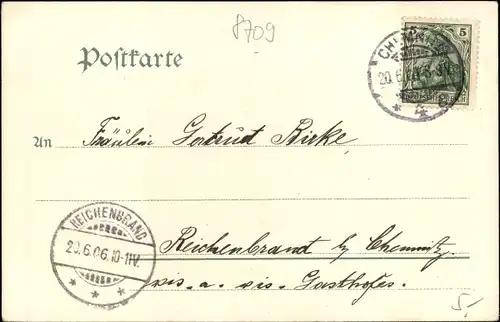 8709
Postkarte
5
CHEMNITZ
20.6.06.
An Fräulein Gertrud Birke
REICHENBRAND
20.6.06.10-11V.
Reichenbrand b/ Chemnitz
vis-a-vis Gasthofes.
5,